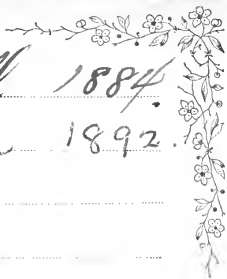 1884.
1892.